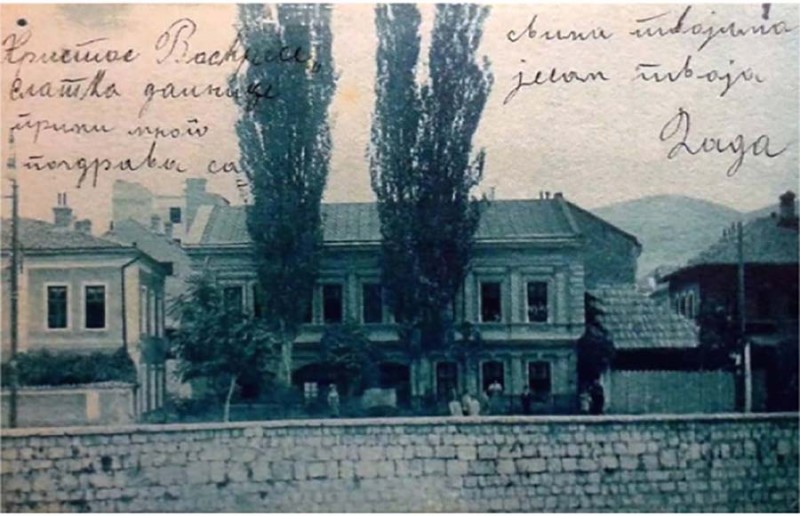 Христос Васкрсе,
слатка данице
прими много
поздрава са
свима твојима
јесам твоја
Рада